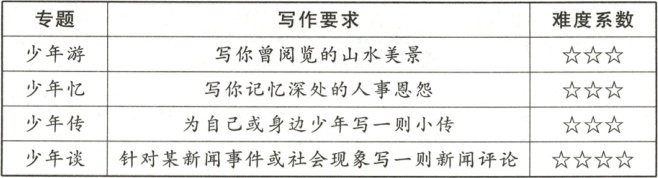 专题 写作要求 难度系数
少年游 写你曾阅览的山水美景 ☆☆☆
少年忆 写你记忆深处的人事恩怨 ☆☆☆
少年传 为自己或身边少年写一则小传 ☆☆☆
少年谈 针对某新闻事件或社会现象写一则新闻评论 ☆☆☆☆